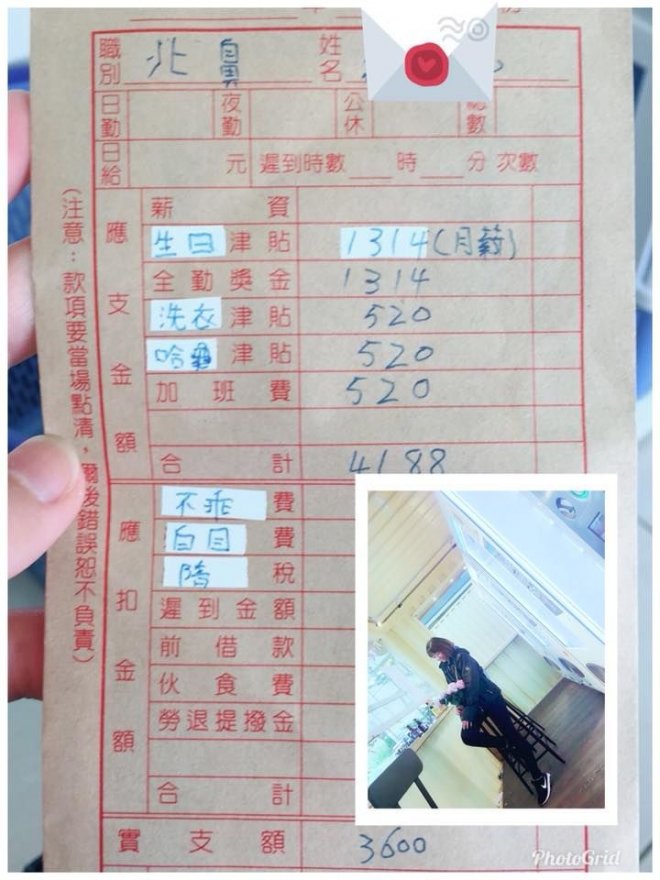 職別 北鼻 姓名
日勤 夜勤 公休 總數
日給 元 遲到時數 時 分 次數
(注意：款項要當場點清，爾後錯誤恕不負責)
應支金額
薪資
生日津貼 1314(月薪)
全勤獎金 1314
洗衣津貼 520
津貼 520
加班費 520
合計 4188
應扣金額
不乖費
白目費
稅
遲到金額
前借款
伙食費
勞退提撥金
合計
實支額 3600
PhotoGrid